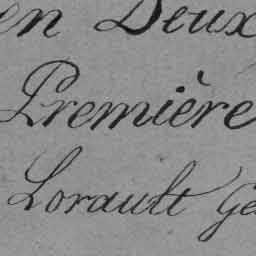 en Deux
Première
Lorault Ge